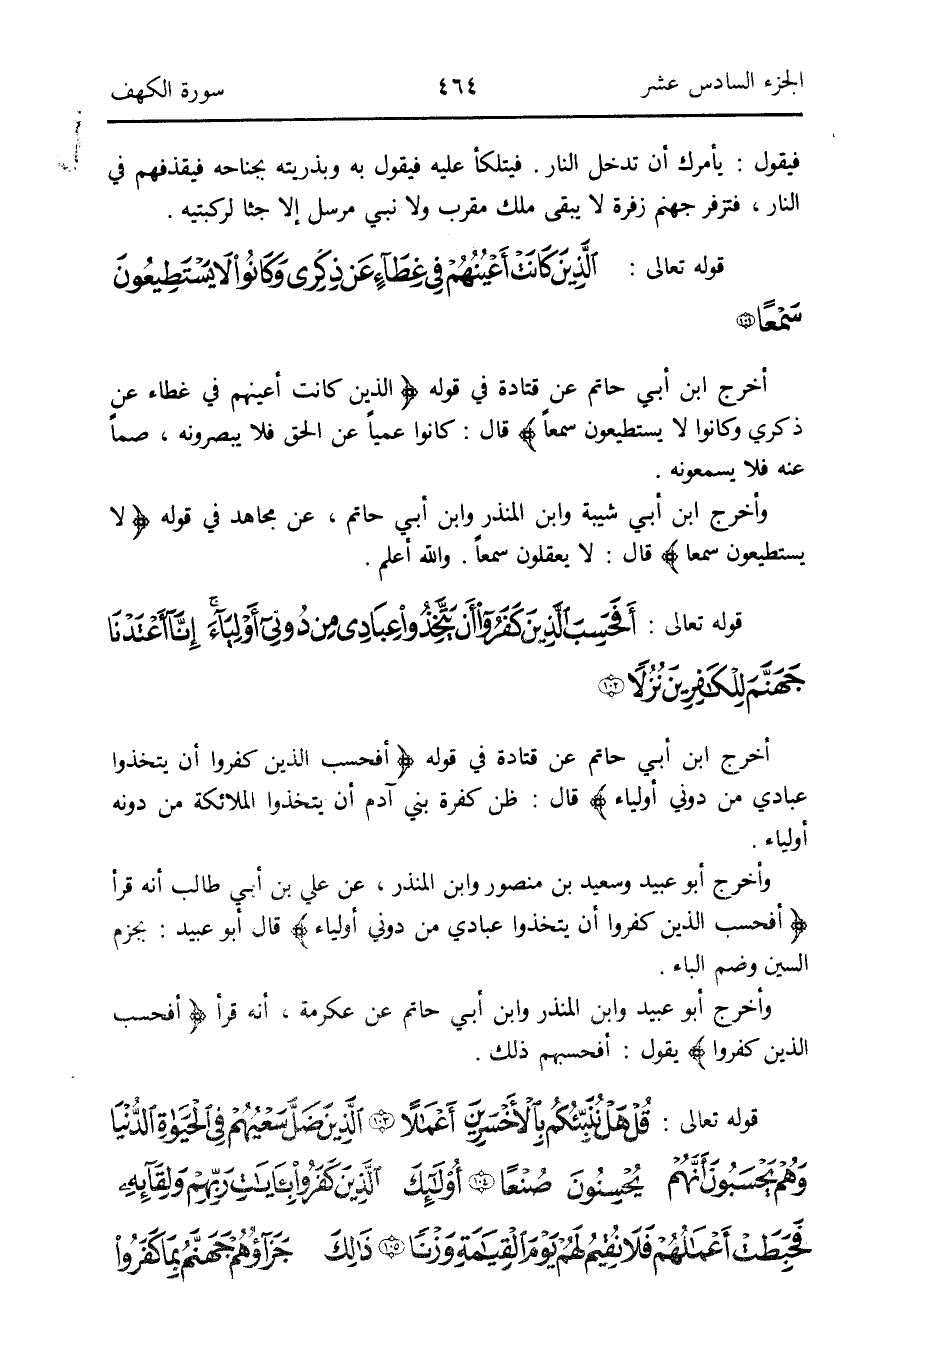 الجزء السادس عشر ٤٦٤ سورة الكهف
فيقول : يأمرك أن تدخل النار . فيتلكأ عليه فيقول به وبذريته بجناحه فيقذفهم في
النار ، فتزفر جهنم زفرة لا يبقى ملك مقرب ولا نبي مرسل إلا جثا لركبتيه .
قوله تعالى : ٱلَّذِينَ كَانَتْ أَعْيُنُهُمْ فِي غِطَآءٍ عَن ذِكْرِى وَكَانُوا۟ لَا يَسْتَطِيعُونَ
سَمْعًا ١٠١
أخرج ابن أبي حاتم عن قتادة في قوله ﴿ الذين كانت أعينهم في غطاء عن
ذكري وكانوا لا يستطيعون سمعاً ﴾ قال : كانوا عمياً عن الحق فلا يبصرونه ، صماً
عنه فلا يسمعونه .
وأخرج ابن أبي شيبة وابن المنذر وابن أبي حاتم ، عن مجاهد في قوله ﴿ لا
يستطيعون سمعا ﴾ قال : لا يعقلون سمعاً . والله أعلم .
قوله تعالى : أَفَحَسِبَ ٱلَّذِينَ كَفَرُوٓا۟ أَن يَتَّخِذُوا۟ عِبَادِى مِن دُونِىٓ أَوْلِيَآءَ ۚ إِنَّآ أَعْتَدْنَا
جَهَنَّمَ لِلْكَٰفِرِينَ نُزُلًا ١٠٢
أخرج ابن أبي حاتم عن قتادة في قوله ﴿ أفحسب الذين كفروا أن يتخذوا
عبادي من دوني أولياء ﴾ قال : ظن كفرة بني آدم أن يتخذوا الملائكة من دونه
أولياء .
وأخرج أبو عبيد وسعيد بن منصور وابن المنذر ، عن علي بن أبي طالب أنه قرأ
﴿ أفحسب الذين كفروا أن يتخذوا عبادي من دوني أولياء ﴾ قال أبو عبيد : بجزم
السين وضم الباء .
وأخرج أبو عبيد وابن المنذر وابن أبي حاتم عن عكرمة ، أنه قرأ ﴿ أفحسب
الذين كفروا ﴾ يقول : أفحسبهم ذلك .
قوله تعالى : قُلْ هَلْ نُنَبِّئُكُم بِٱلْأَخْسَرِينَ أَعْمَٰلًا ١٠٣ ٱلَّذِينَ ضَلَّ سَعْيُهُمْ فِى ٱلْحَيَوٰةِ ٱلدُّنْيَا
وَهُمْ يَحْسَبُونَ أَنَّهُمْ يُحْسِنُونَ صُنْعًا ١٠٤ أُو۟لَٰٓئِكَ ٱلَّذِينَ كَفَرُوا۟ بِـَٔايَٰتِ رَبِّهِمْ وَلِقَآئِهِۦ
فَحَبِطَتْ أَعْمَٰلُهُمْ فَلَا نُقِيمُ لَهُمْ يَوْمَ ٱلْقِيَٰمَةِ وَزْنًا ١٠٥ ذَٰلِكَ جَزَآؤُهُمْ جَهَنَّمُ بِمَا كَفَرُوا۟